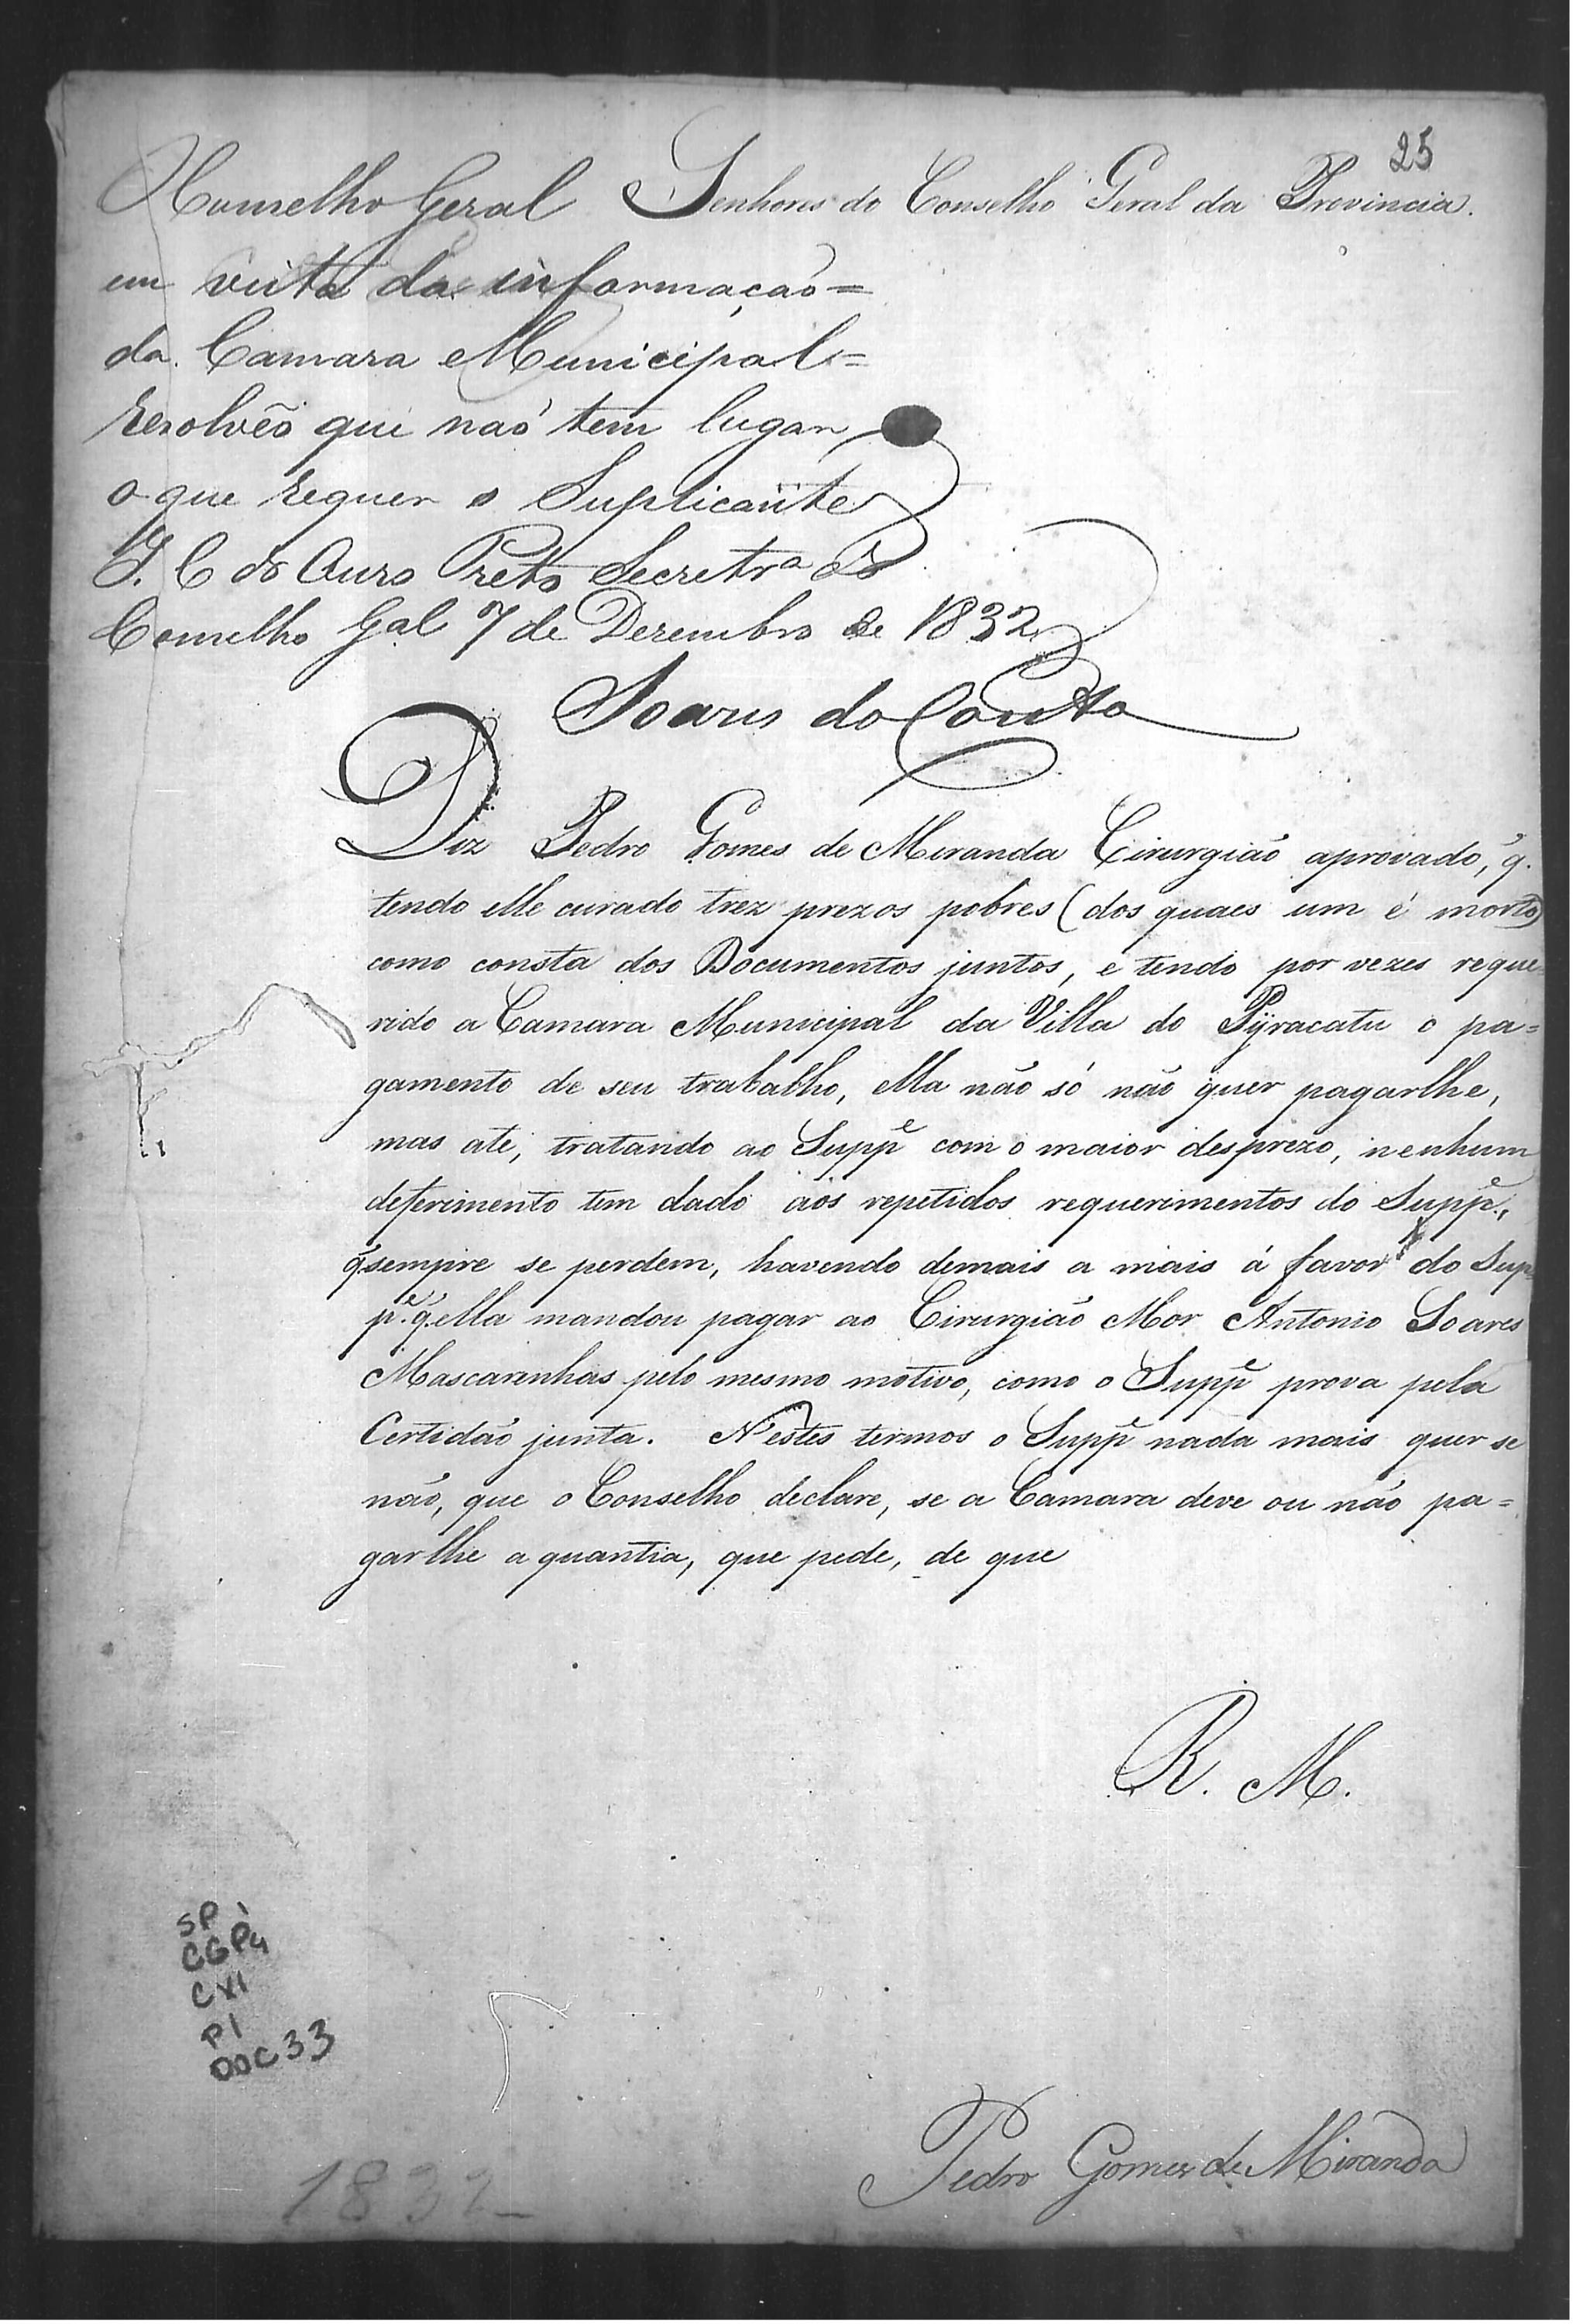 25
Senhores do Conselho Geral da Provincia.
O Conselho Geral
em vista da informaçaõ=
da Camara Municipal=
resolvêo que naõ tem lugar
o que requer o Suplicante
I. C do Ouro Preto Secretrª do
Conselho Gal 7 de Dezembro de 1832
Soares do Couto
Diz Pedro Gomes de Miranda Cirurgiaõ aprovado, q̃.
tendo elle curado trez prezos pobres (dos quaes um é morto)
como consta dos Documentos juntos, e tendo por vezes reque-
rido a Camara Municipal da Villa do Pÿracatu o pa=
gamento de seu trabalho, ella não só não quer pagarlhe,
mas até, tratando ao Suppᵉ com o maior desprezo, nenhum
deferimento tem dado aos repetidos requerimentos do Suppᵉ.,
q̃ sempre se perdem, havendo demais a mais á favor do Sup
pᵉ. q̃. ella mandou pagar ao Cirurgião Mor Antonio Soares
Mascarenhas pelo mesmo motivo, como o Suppᵉ prova pela
Certidão junta. N'estes termos o Suppᵉ nada mais quer se
não, que o Conselho declare, se a Camara deve ou não pa=
garlhe a quantia, que pede, de que
R. M.
SP 1
CGP4
CX1
P1
DOC 33
1832
Pedro Gomes de Miranda